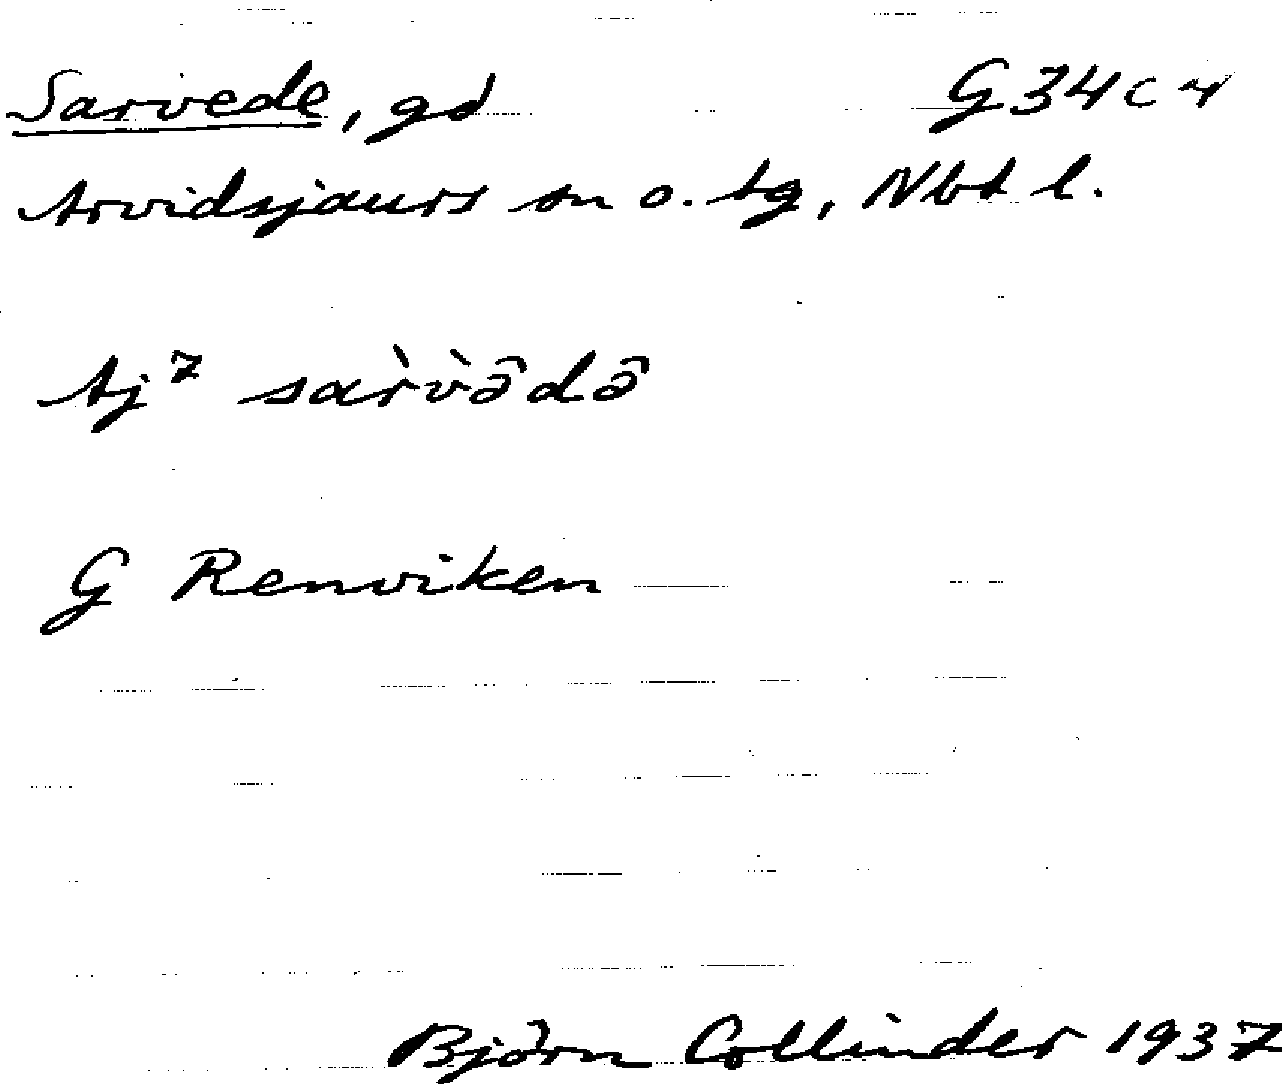 Sarvede, gd G34c v
Arvidsjaurs sn o. tg, Nbt l.
Aj⁷ sar̀v̀ə̂də̂
G Renviken
Björn Collinder 1937